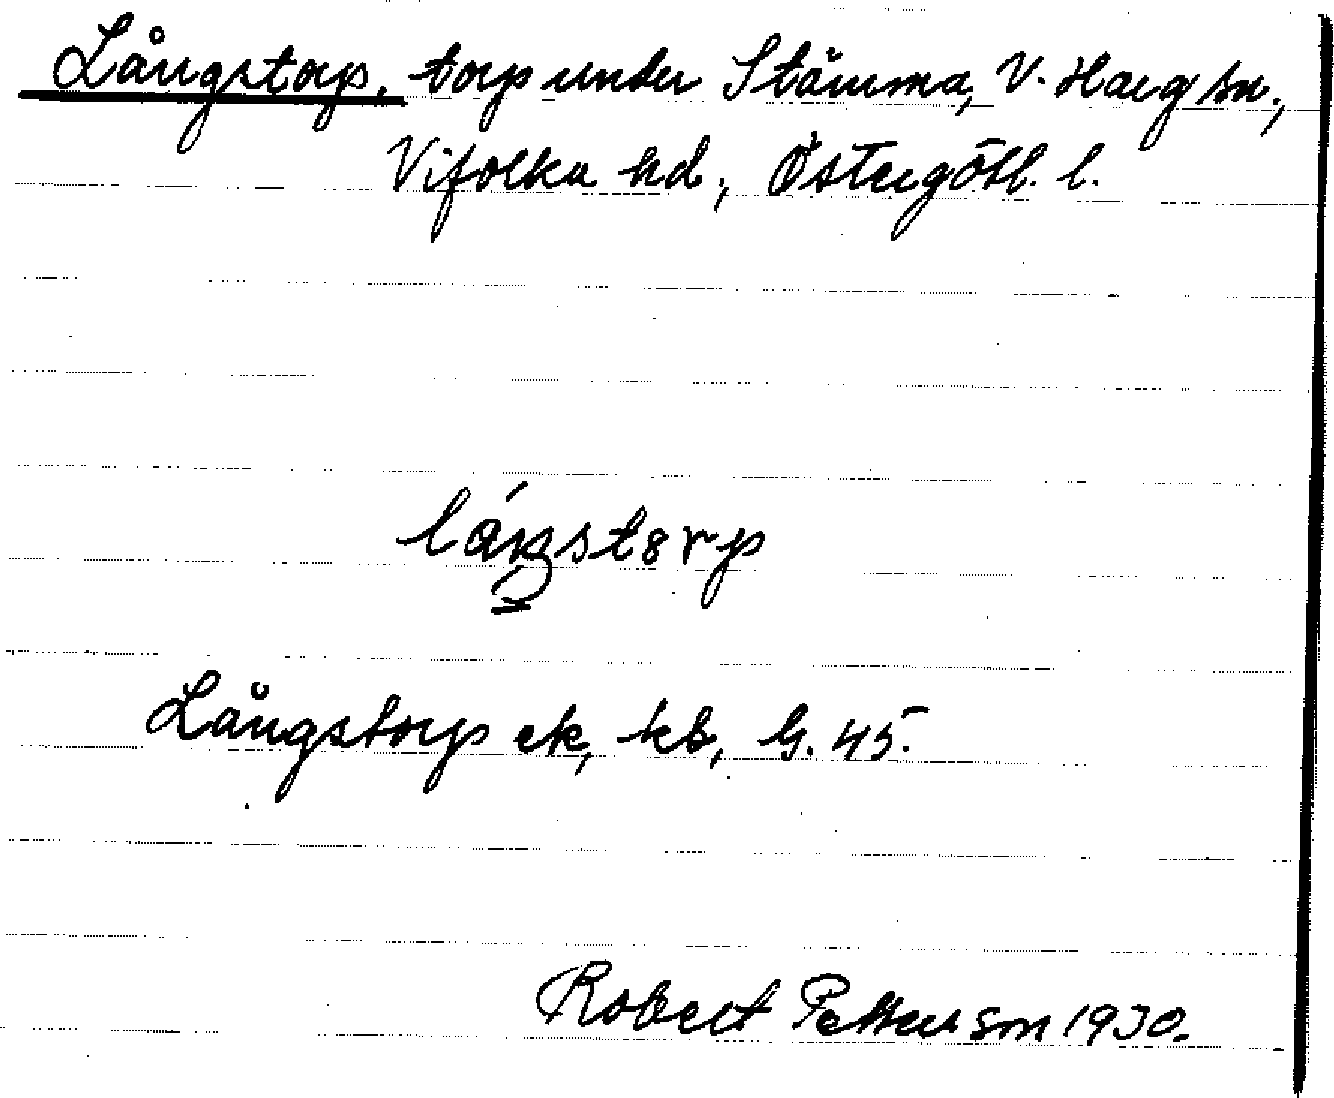 Långstorp, torp under Stämma, V. Harg sn.,
Vifolka hd, Östergötl. l.
láŋstȣrp
Långstorp ek, kb, G. 45.
Robert Petterson 1930.